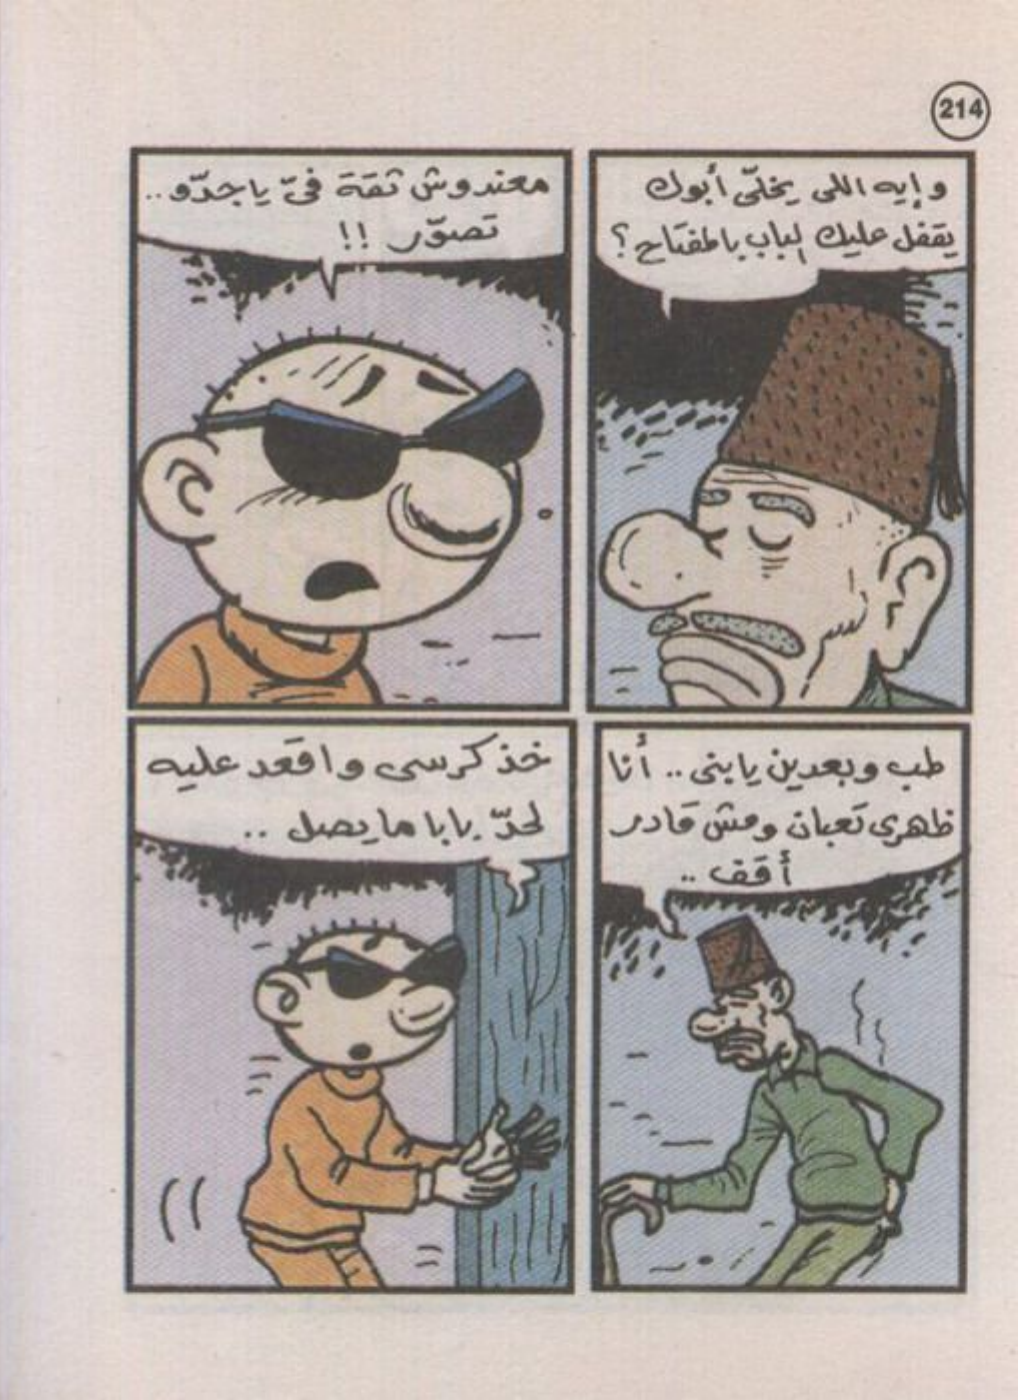 214
وإيه اللى يخلّى أبوك
يقفل عليك الباب بالمفتاح؟
معندوش ثقة فىّ ياجدّو..
تصوّر !!
طب وبعدين يابنى.. أنا
ظهرى تعبان ومش قادر
أقف ..
خذ كرسى واقعد عليه
لحدّ بابا مايصل ..